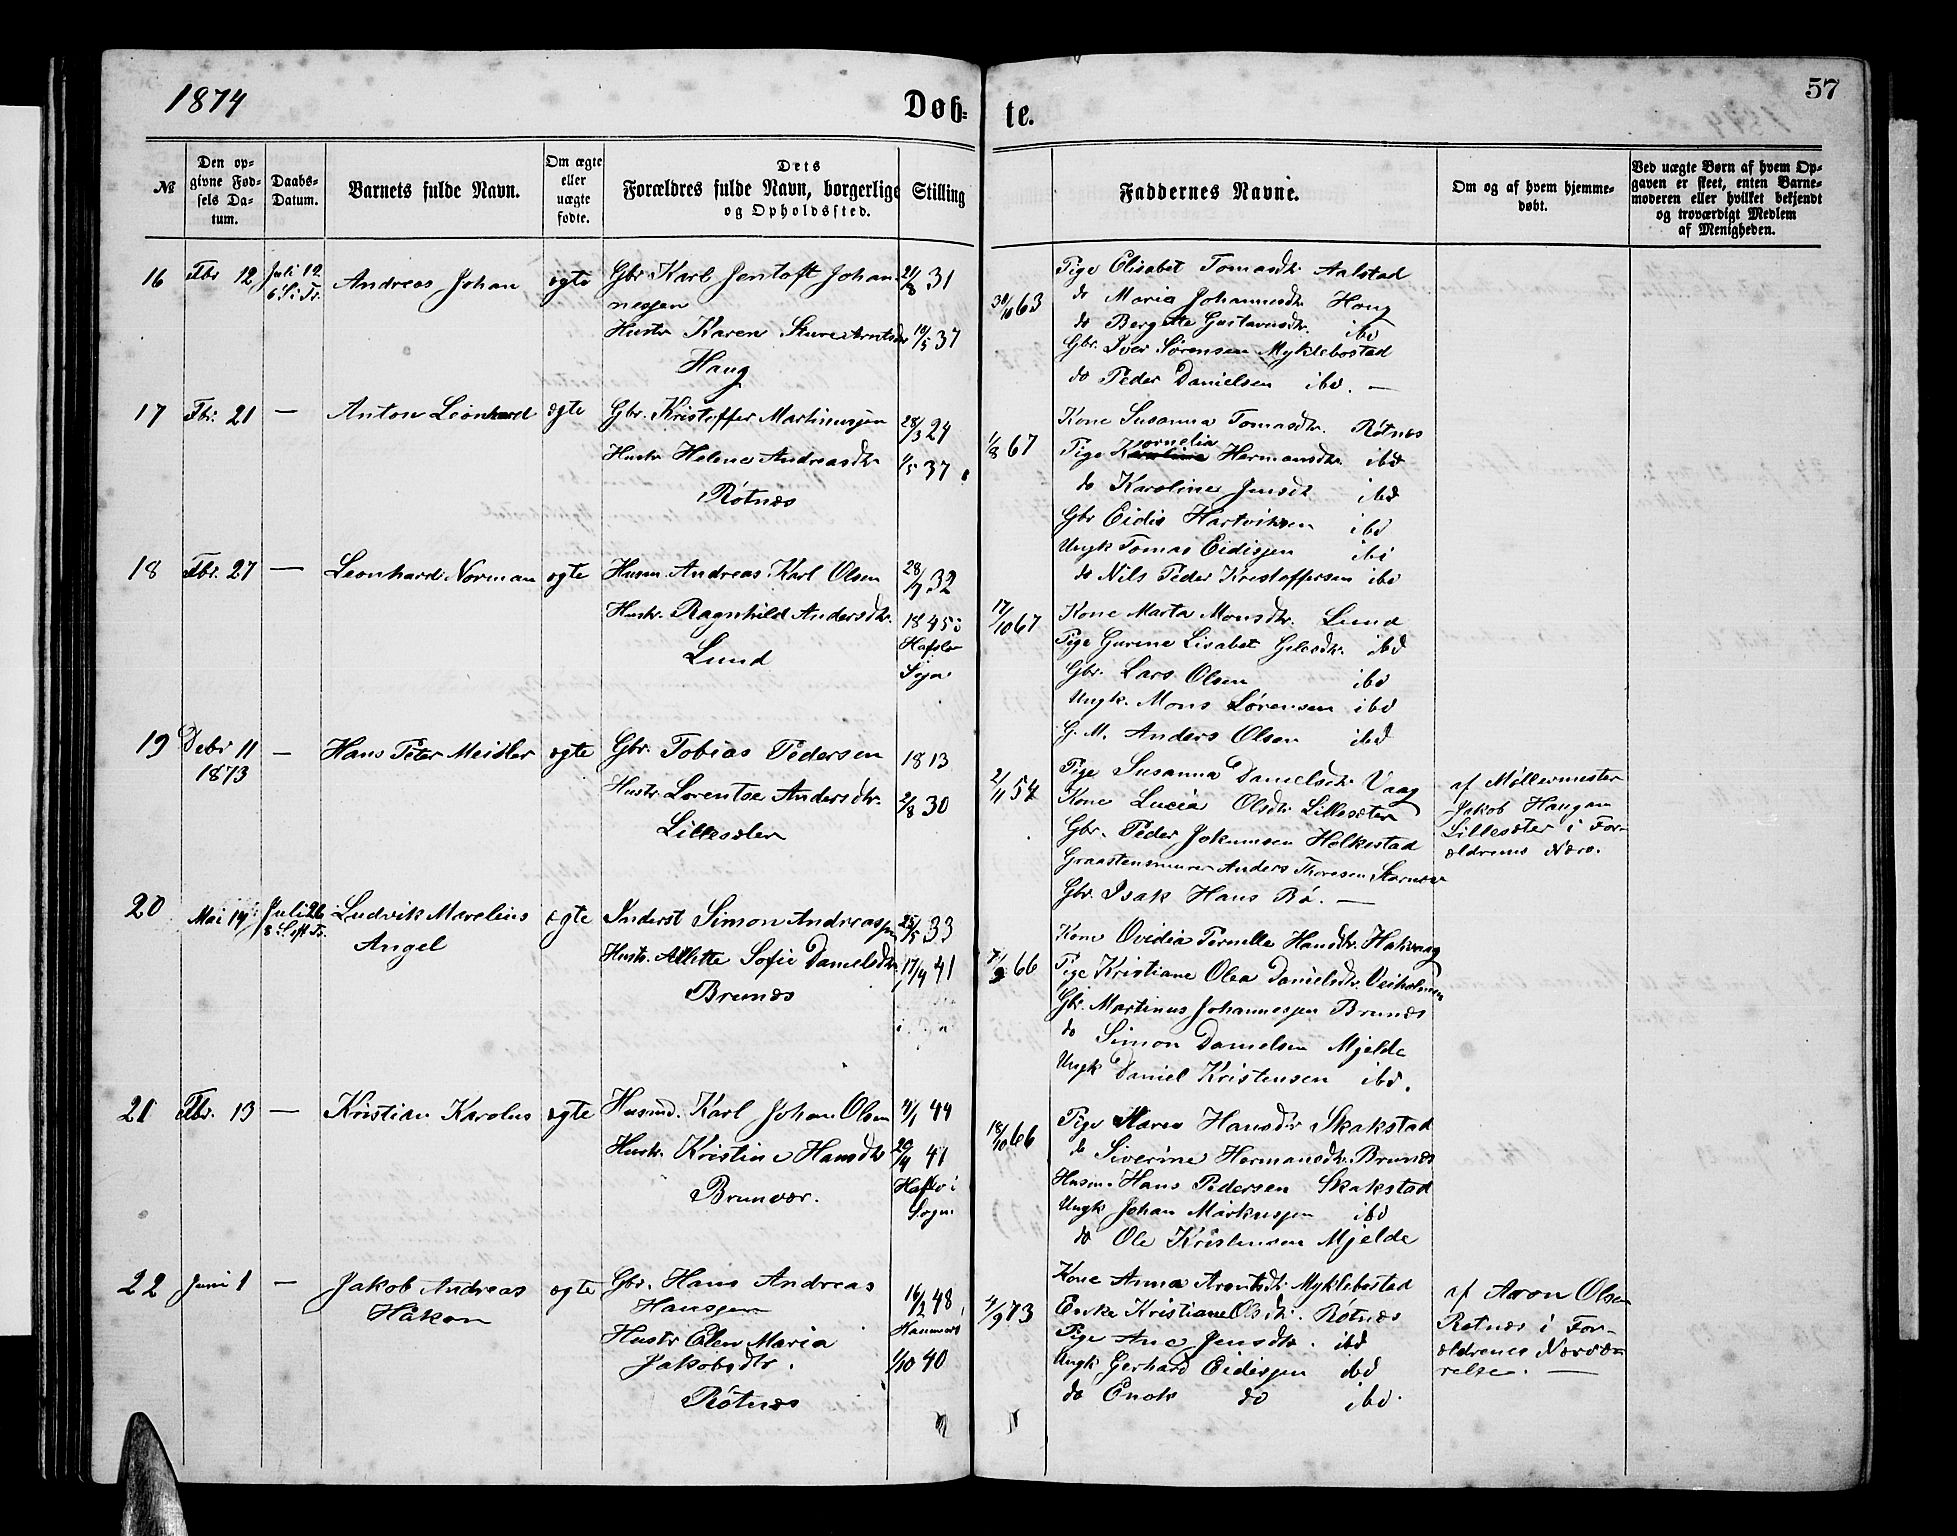 1874
Døb-
te.
57
№
Den op-
givne Fød-
sels Da-
tum.
Daabs-
Datum.
Barnets fulde Navn.
Om ægte
eller
uægte
fødte.
Dets
Forældres fulde Navn, borgerlige
og Opholdssted.
Stilling
Faddernes Navne.
Om og af hvem hjemme-
døbt.
Ved uægte Børn af hvem Op-
gaven er skeet, enten Barne-
moderen eller hvilket bekjendt
og troværdigt Medlem
af Menigheden.
16
Fbr 12
Juli 12
6 S. i Tr.
Andreas Johan
ægte
Gbr. Karl Jentoft Johan
nesjen
Hustr Karen Arntsdtr
Haug
21/8 31
19/5 37
30/10 63
Pige Elisabet Tomasdtr. Aalstad
do Maria Johannesdtr. Haug
do Bergitte Gustavusdtr. ibd
Gbr. Iver Sørensen Myklebostad
do Peder Danielsen ibd. —
17
Fbr. 21
—
Anton Leonhard
ægte
Gbr. Kristoffer Martinusjen
Hustr Helena Andreasdtr
Røtnæs
28/3 24
1/5 37
1/8 67
Kone Susanna Tomasdtr. Røtnæs
Pige Kornelia Hermansdtr. ibd
do Karoline Jensdt ibd
Gbr Eidis Hartviksen ibd
Ungk Tomas Eidisjen ibd
do Nils Peder Kristoffersen ibd
18
Fbr. 27
—
Leonhard Norman
ægte
Husm. Andreas Karl Olsen
Hustr. Ragnhild Andersdtr.
Lund
28/7 32
1845 i
Hafslo
Sogn
17/10 67
Kone Marta Monsdtr. Lund
Pige Gurine Lisabet ibd
Gbr. Lars Olsen ibd
Ungk. Mons Sørensen ibd
G. M. Anders Olsen ibd
19
Debr 11
1873
—
Hans Peter Meidler
ægte
Gbr. Tobias Pedersen
Hustr. Lorentse Andersdtr.
Lillesæter
1813
2/8 30
2/11 54
Pige Susanna Danielsdtr. Vaag
Kone Lucia Olsdtr. Lillesæter
Gbr. Peder Jokumsen Helkestad
Graastensmurer Anders Thoresen
Gbr. Isak Hans Bø. —
af Møllermester
Jakob Haugan
Lillesæter i For-
ældrenes Nærv.
20
Mai 14
Juli 26
8 S. eft Tr.
Ludvik Marelius
Angel
ægte
Inderst Simon Andreasjen
Hustr. Allette Sofie Danielsdtr
Brunæs
25/5 33
17/4 41
7/9 66
Kone Ovidia Pernelle Hansdtr. Hakvaag
Pige Kristiane Olea Danielsdtr. Veiholmen
Gbr. Martinus Johannesjen Brunæs
do Simon Danielsen Mjelde
Ungk Daniel Kristensen ibd.
21
Fbr. 13
—
Kristian Karolus
ægte
Husmd. Karl Johan Olsen
Hustr. Kristine Hansdtr
Brunvær.
4/1 44
20/4 41
Hafslo i
Sogn
18/10 66
Pige Maren Hansdtr Skakstad
do Siverine Hermansdtr. Brunæs
Husm. Hans Pedersen Skakstad
Ungk Johan Markusjen ibd
do Ole Kristensen Mjelde
22
Juni 1
—
Jakob Andreas
Håkon
ægte
Gbr. Hans Andreas
Hansjen
Hustr Elen Maria
Jakobsdtr.
Røtnæs
16/2 48
1/10 40
4/9 73
Kone Anna Arentsdtr. Myklebostad
Enke Kristiane Olsdtr. Røtnæs
Pige Ane Jensdtr. ibd
Ungk Gerhard Eidisjen ibd
do Enok do ibd.
af Aron Olsen
Røtnæs i For-
ældrenes Nærvæ-
relse. —